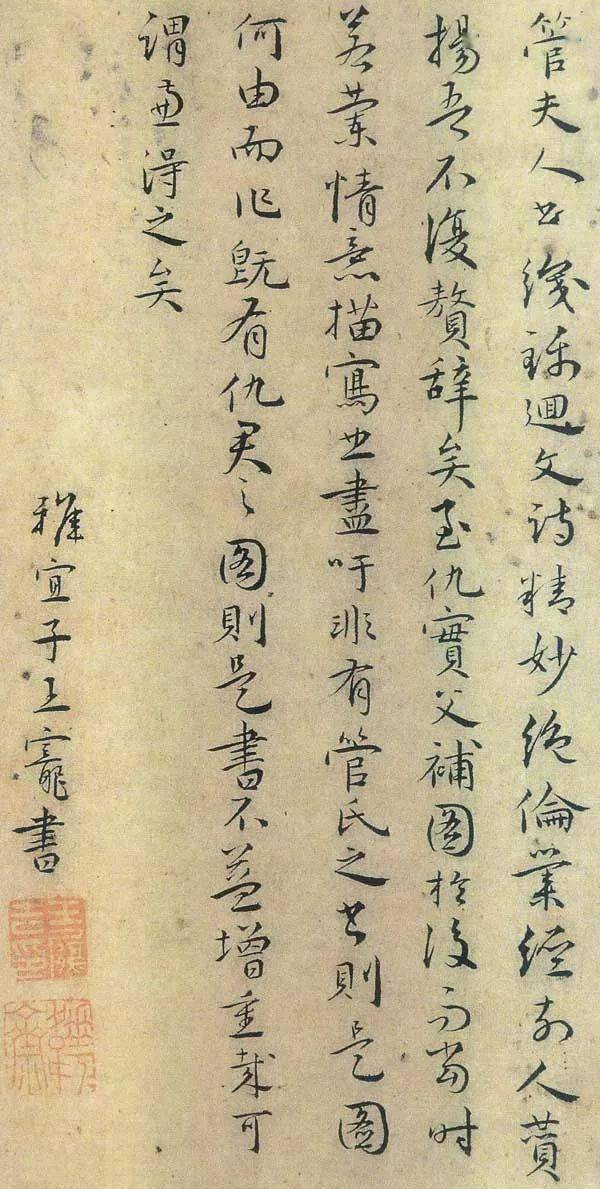 管夫人書織錦迴文詩精妙絕倫業經前人賛
揚吾不復贅辭矣至仇實父補圖於後而當時
若蘭情意描寫曲盡吁非有管氏之書則是圖
何由而作既有仇君之圖則是書不益增重哉可
謂兩得之矣
雅宜子王寵書